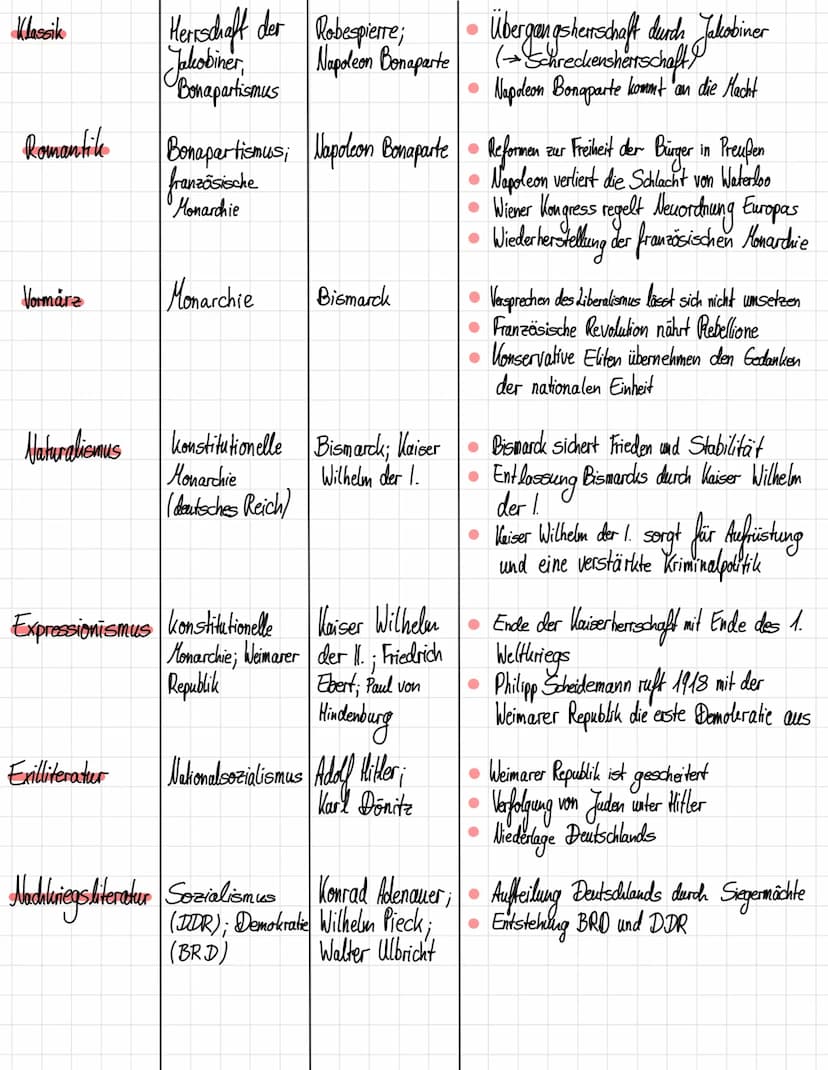 Klassik
Herrschaft der
Jakobiner,
Bonapartismus
Robespierre;
Napoleon Bonaparte
Übergangsherrschaft durch Jakobiner
(→ Schreckensherrschaft)
Napoleon Bonaparte kommt an die Macht
Romantik
Bonapartismus;
französische
Monarchie
Napoleon Bonaparte
Reformen zur Freiheit der Bürger in Preußen
Napoleon verliert die Schlacht von Waterloo
Wiener Kongress regelt Neuordnung Europas
Wiederherstellung der französischen Monarchie
Vormärz
Monarchie
Bismarck
Versprechen des Liberalismus lässt sich nicht umsetzen
Französische Revolution nährt Rebellione
Konservative Eliten übernehmen den Gedanken
der nationalen Einheit
Naturalismus
konstitutionelle
Monarchie
(deutsches Reich)
Bismarck; Kaiser
Wilhelm der I.
Bismarck sichert Frieden und Stabilität
Entlassung Bismarcks durch Kaiser Wilhelm
der I.
Kaiser Wilhelm der I. sorgt für Aufrüstung
und eine verstärkte Kriminalpolitik
Expressionismus
konstitutionelle
Monarchie; Weimarer
Republik
Kaiser Wilhelm
der II.; Friedrich
Ebert; Paul von
Hindenburg
Ende der Kaiserherrschaft mit Ende des 1.
Weltkriegs
Philipp Scheidemann ruft 1918 mit der
Weimarer Republik die erste Demokratie aus
Exilliteratur
Nationalsozialismus
Adolf Hitler;
Karl Dönitz
Weimarer Republik ist gescheitert
Verfolgung von Juden unter Hitler
Niederlage Deutschlands
Nachkriegsliteratur
Sozialismus
(DDR); Demokratie
(BRD)
Konrad Adenauer;
Wilhelm Pieck;
Walter Ulbricht
Aufteilung Deutschlands durch Siegermächte
Entstehung BRD und DDR